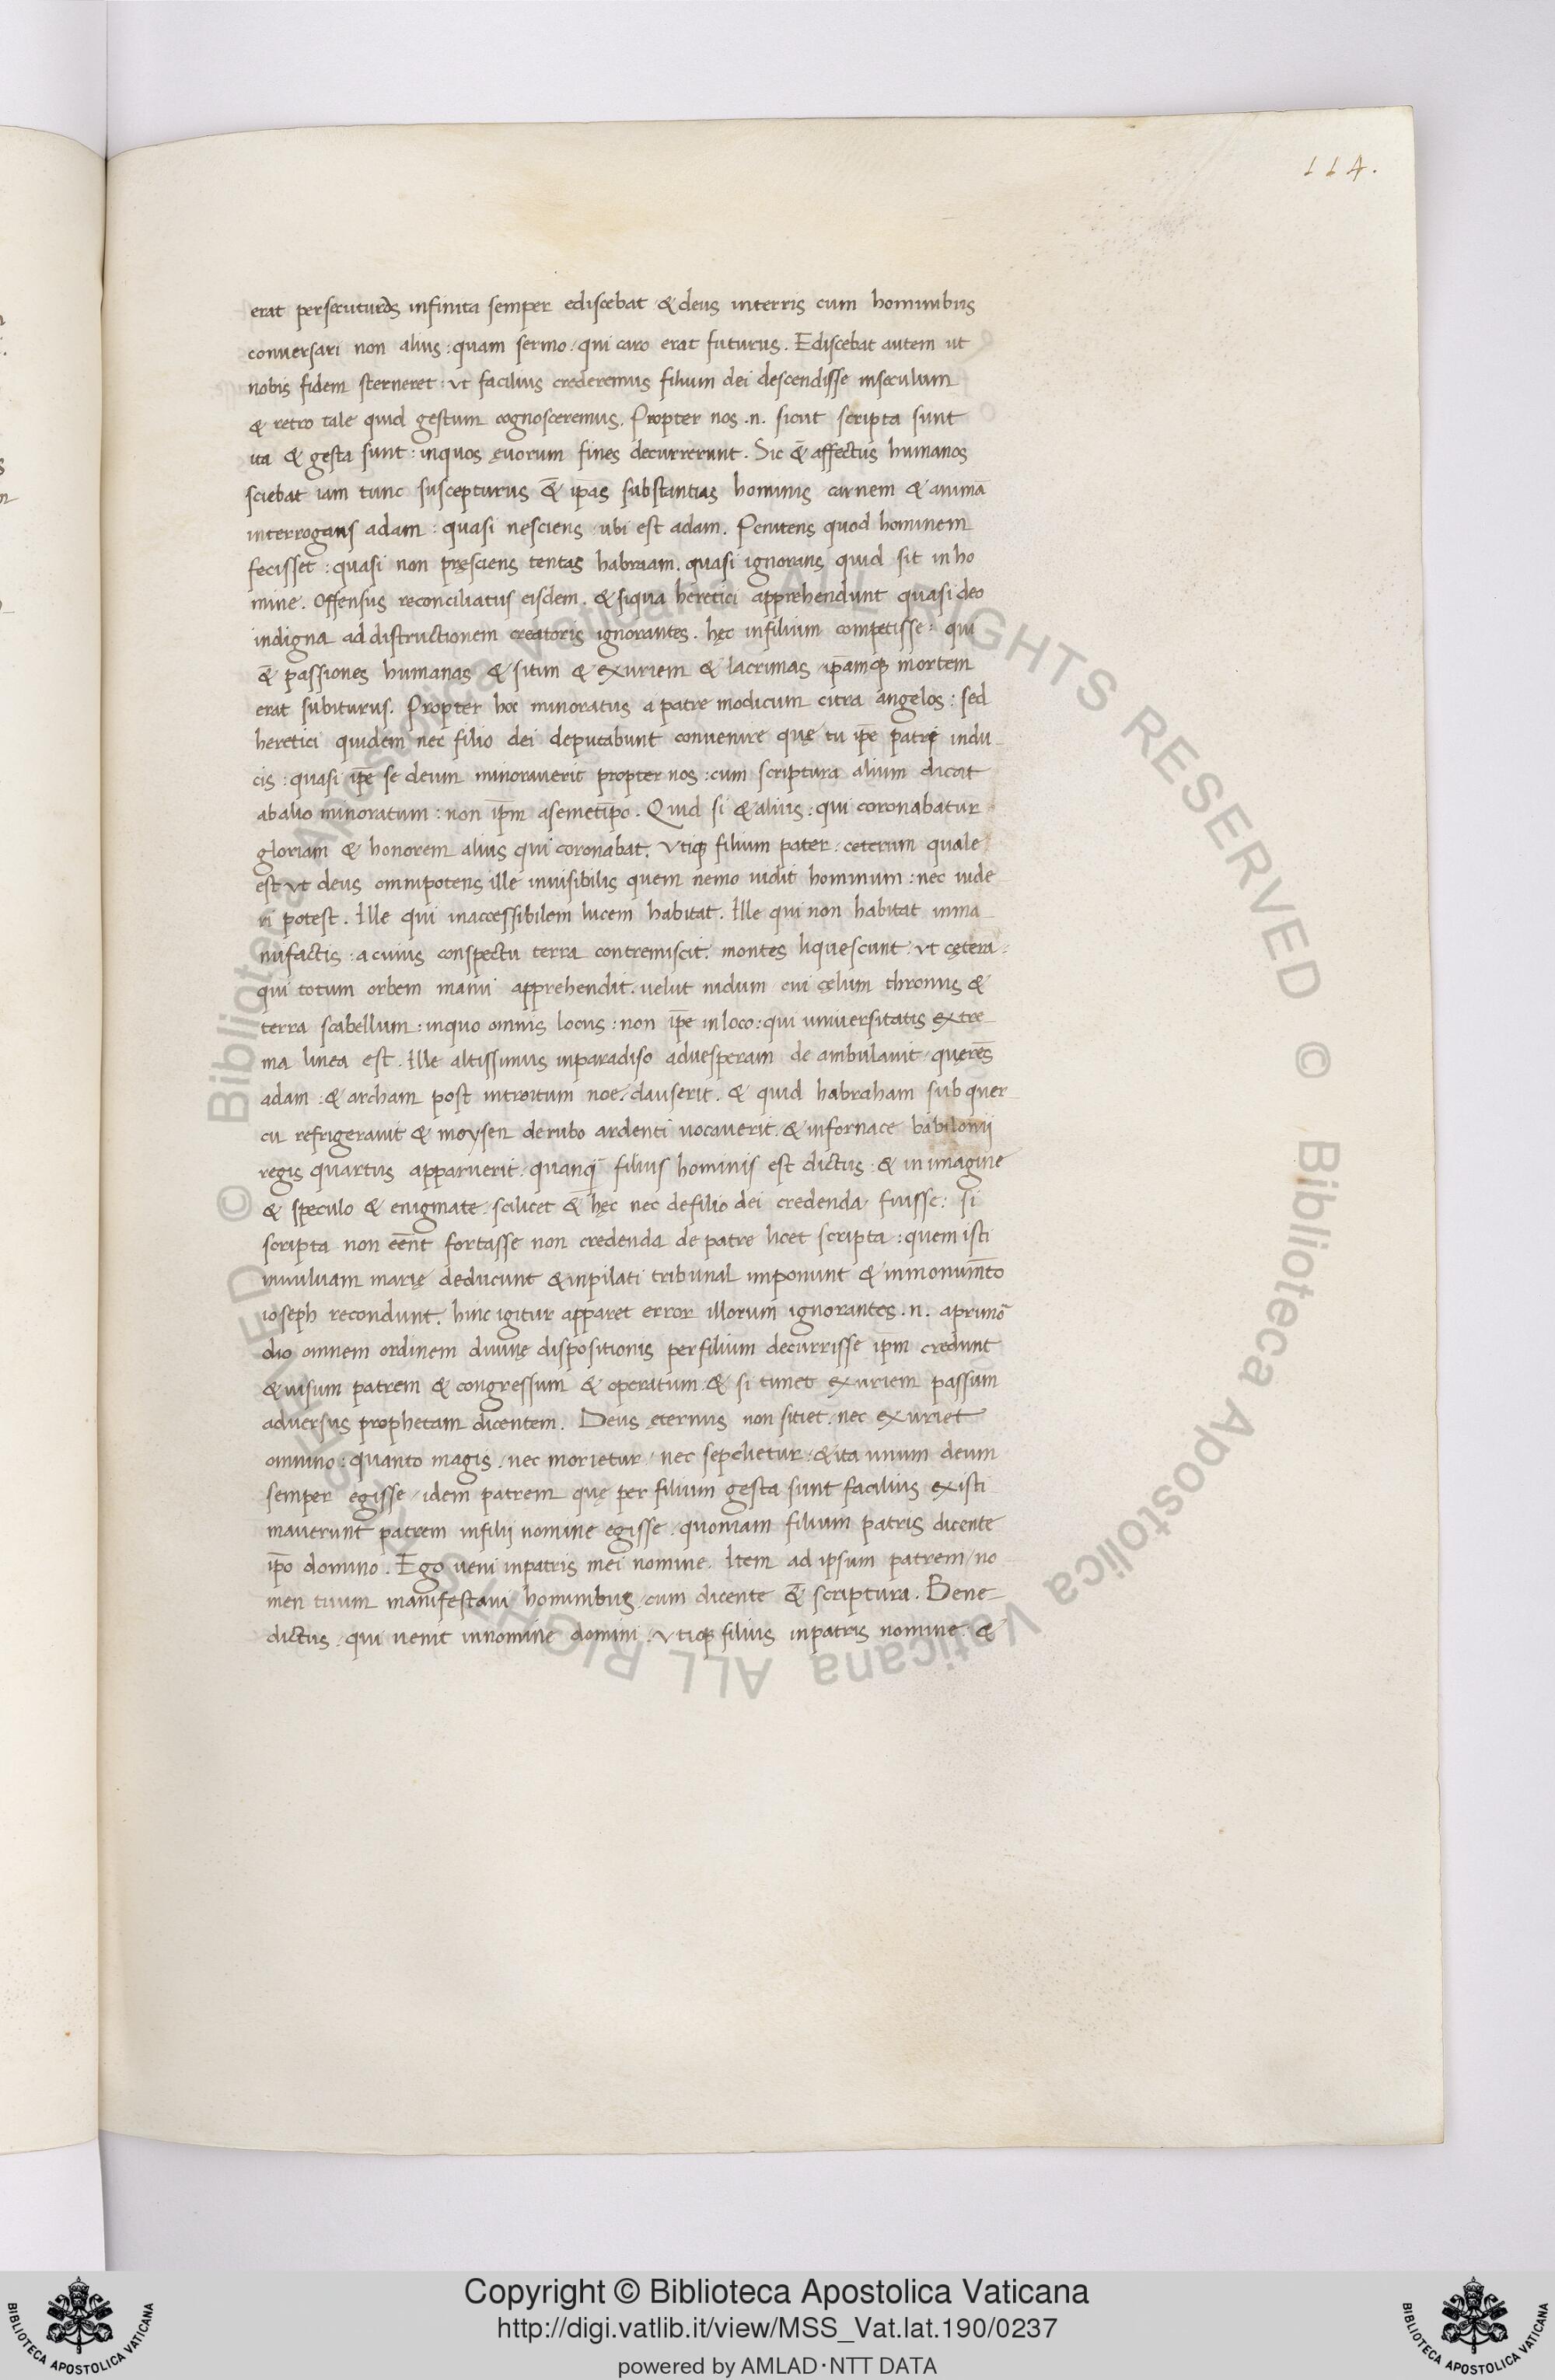 114.
erat persecuturos infinita semper ediscebat & deus interris cum hominibus
conversari non alius : quam sermo . qui caro erat futurus . Ediscebat autem ut
nobis fidem sterneret : ut facilius crederemus filium dei descendisse inseculum
& retro tale quid gestum cognosceremus . Propter nos .n. sicut scripta sunt
ita & gesta sunt : inquos ęvorum fines decurrerunt . Sic &̄ affectus humanos
sciebat iam tunc suscepturus &̄ ip̄as substantias hominis carnem & animā
interrogans adam : quasi nesciens ubi est adam . Penitens quod hominem
fecisset : quasi non pręsciens tentas habraam . quasi ignorans quid sit in ho
mine . Offensus reconciliatus eisdem . & siqua heretici apprehendunt quasi deo
indigna ad distructionem creatoris ignorantes . hęc infilium competisse : qui
&̄ passiones humanas & sitim & exuriem & lacrimas ip̄amqȝ mortem
erat subiturus . Propter hoc minoratus a patre modicum citra angelos : sed
heretici quidem nec filio dei deputabunt convenire quę tu ip̄e patri indu
cis : quasi ip̄e se deum minoraverit propter nos : cum scriptura alium dicat
abalio minoratum : non ip̄m asemetip̄o . Quid si & alius : qui coronabatur
gloriam & honorem alius qui coronabat . Utiqȝ filium pater . ceterum quale
est ut deus omnipotens ille invisibilis quem nemo vidit hominum : nec vide
ri potest . Ille qui inaccessibilem lucem habitat . Ille qui non habitat inma
nufactis : a cuius conspectu terra contremiscit . montes liquescunt . ut cętera :
qui totum orbem manu apprehendit . velut nidum cui cęlum thronus &
terra scabellum : inquo omnis locus : non ip̄e inloco : qui universitatis extre
ma linea est . Ille altissimus inparadiso advesperam de ambulavit . querēs
adam : & archam post introitum noe . clauserit . & quid habraham sub quer
cu refrigeravit & moysen derubo ardenti vocaverit . & infornace babilonii
regis quartus apparverit . quanqȝ̄ filius hominis est dictus : & in imagine
& speculo & enigmate . scilicet &̄ hęc nec defilio dei credenda fuisse : si
scripta non eēnt fortasse non credenda de patre licet scripta : quem isti
invulvam marię deducunt & inpilati tribunal imponunt & inmonum̄to
ioseph recondunt . hinc igitur apparet error illorum ignorantes .n. aprimō
dio omnem ordinem divinę dispositionis perfilium decurrisse ip̄m credunt
& visum patrem & congressum & operatum & si timet exuriem passum
adversus prophetam dicentem . Deus ęternus non sitiet . nec exuriet
omnino : quanto magis . nec morietur . nec sepelietur : & ita unum deum
semper egisse idem patrem quę per filium gesta sunt facilius existi
maverunt patrem infilii nomine egisse . quoniam filium patris dicente
ip̄o domino . Ego veni inpatris mei nomine . Item ad ipsum patrem no
men tuum manifestavi hominibus cum dicente &̄ scriptura . Bene
dictus . qui venit innomine domini . utiqȝ filius inpatris nomine . &
© Biblioteca Apostolica Vaticana ALL RIGHTS RESERVED © Biblioteca Apostolica Vaticana ALL RIGHTS RESERVED
Copyright © Biblioteca Apostolica Vaticana
http://digi.vatlib.it/view/MSS_Vat.lat.190/0237
powered by AMLAD·NTT DATA
BIBLIOTECA APOSTOLICA VATICANA
BIBLIOTECA APOSTOLICA VATICANA